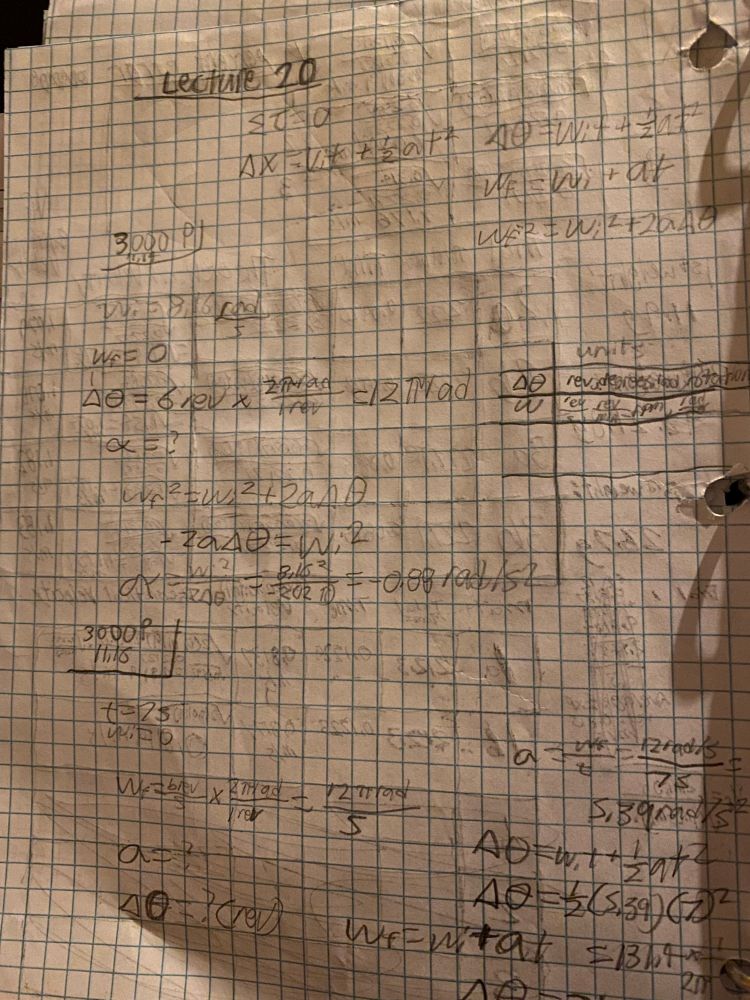 Lecture 20
ΔX = Vit + ½at²
Δθ = Wit + ½at²
Wf = Wi + at
Wf² = Wi² + 2aΔθ
3000 P
11.14
Wi = 8.16 rad/s
Wf = 0
Δθ = 6 rev × 2π rad/1 rev = 12π rad
α = ?
units
Δθ rev, degrees, rad, rotation
W
Wf² = Wi² + 2aΔθ
-2aΔθ = Wi²
α = Wi²/-2Δθ = 8.16²/-2(12π) = -0.88 rad/s²
3000P
11.15
t = 7s
Wi = 0
Wf = 6rev/s × 2π rad/1 rev = 12π rad/s
a = ?
Δθ = ? (rev)
Wf = Wi + at
a = Wf/t = 12 rad/s/7s =
5.39 rad/s²
Δθ = Wit + ½at²
Δθ = ½(5.39)(7)²
= 131.9
Δθ =